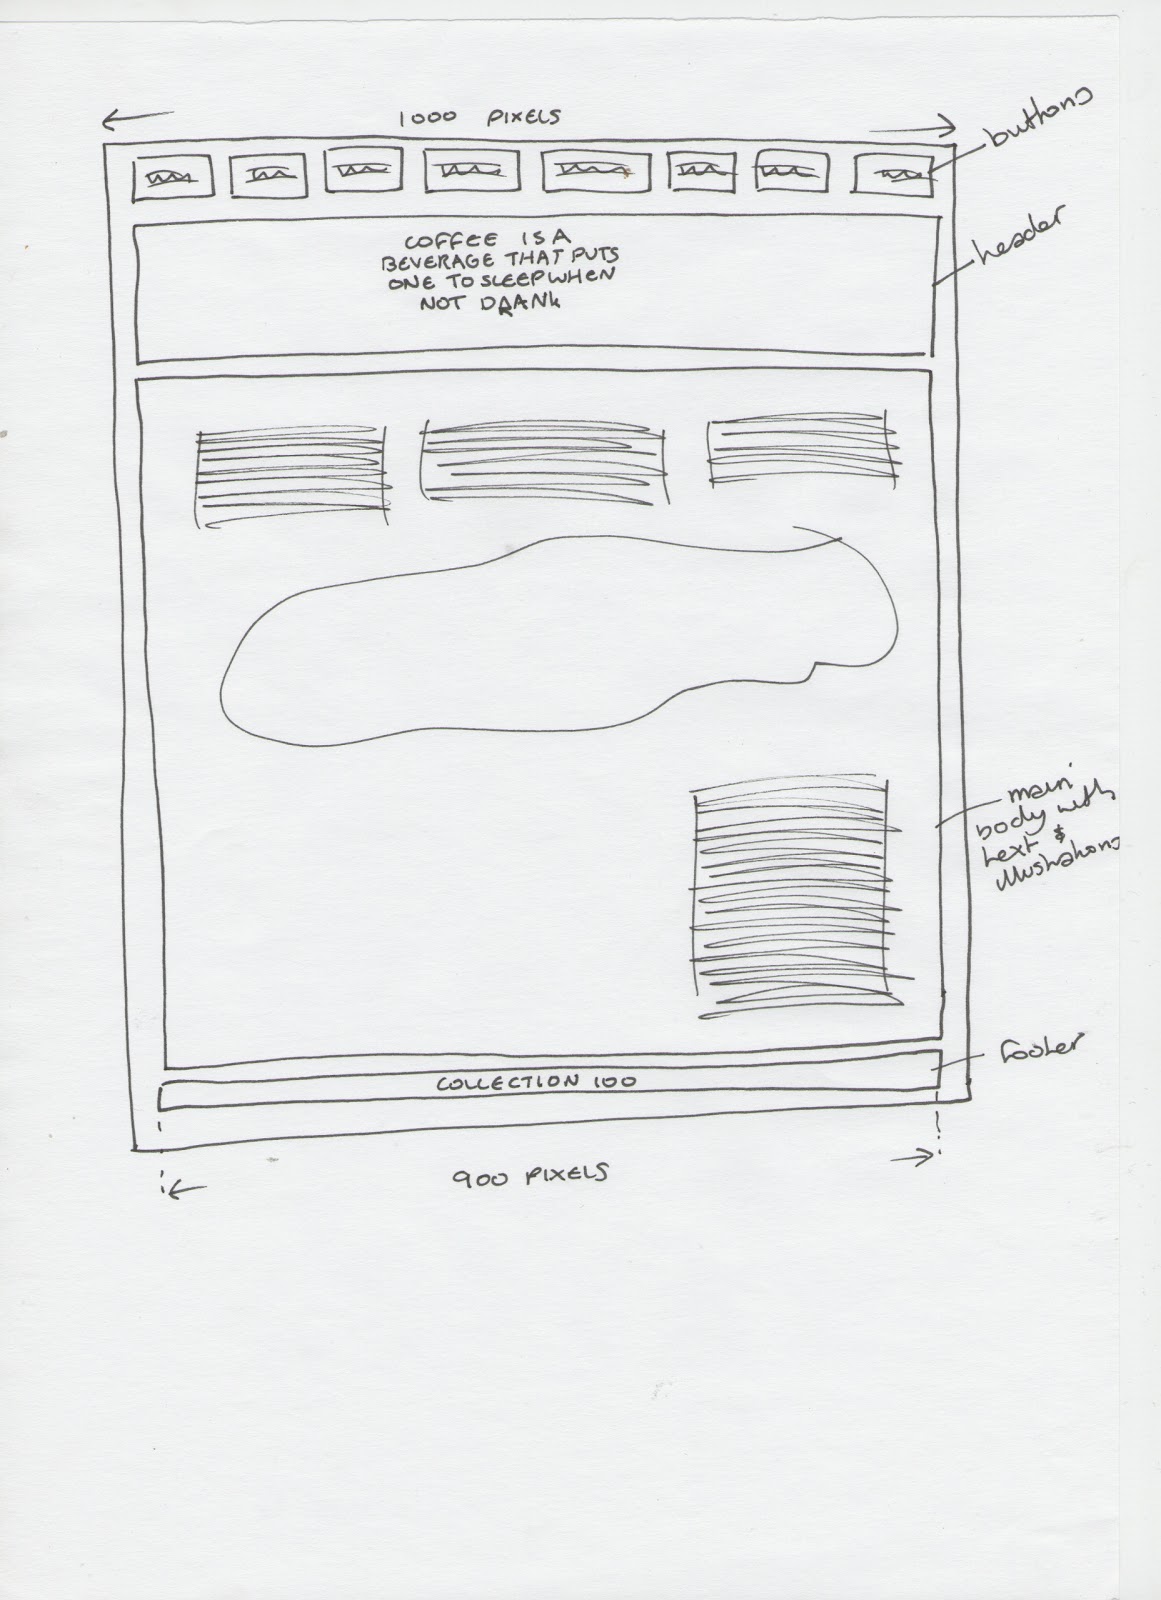 1000 PIXELS
buttons
header
COFFEE IS A
BEVERAGE THAT PUTS
ONE TO SLEEP WHEN
NOT DRANK
main
body with
text &
illustrations
footer
COLLECTION 100
900 PIXELS